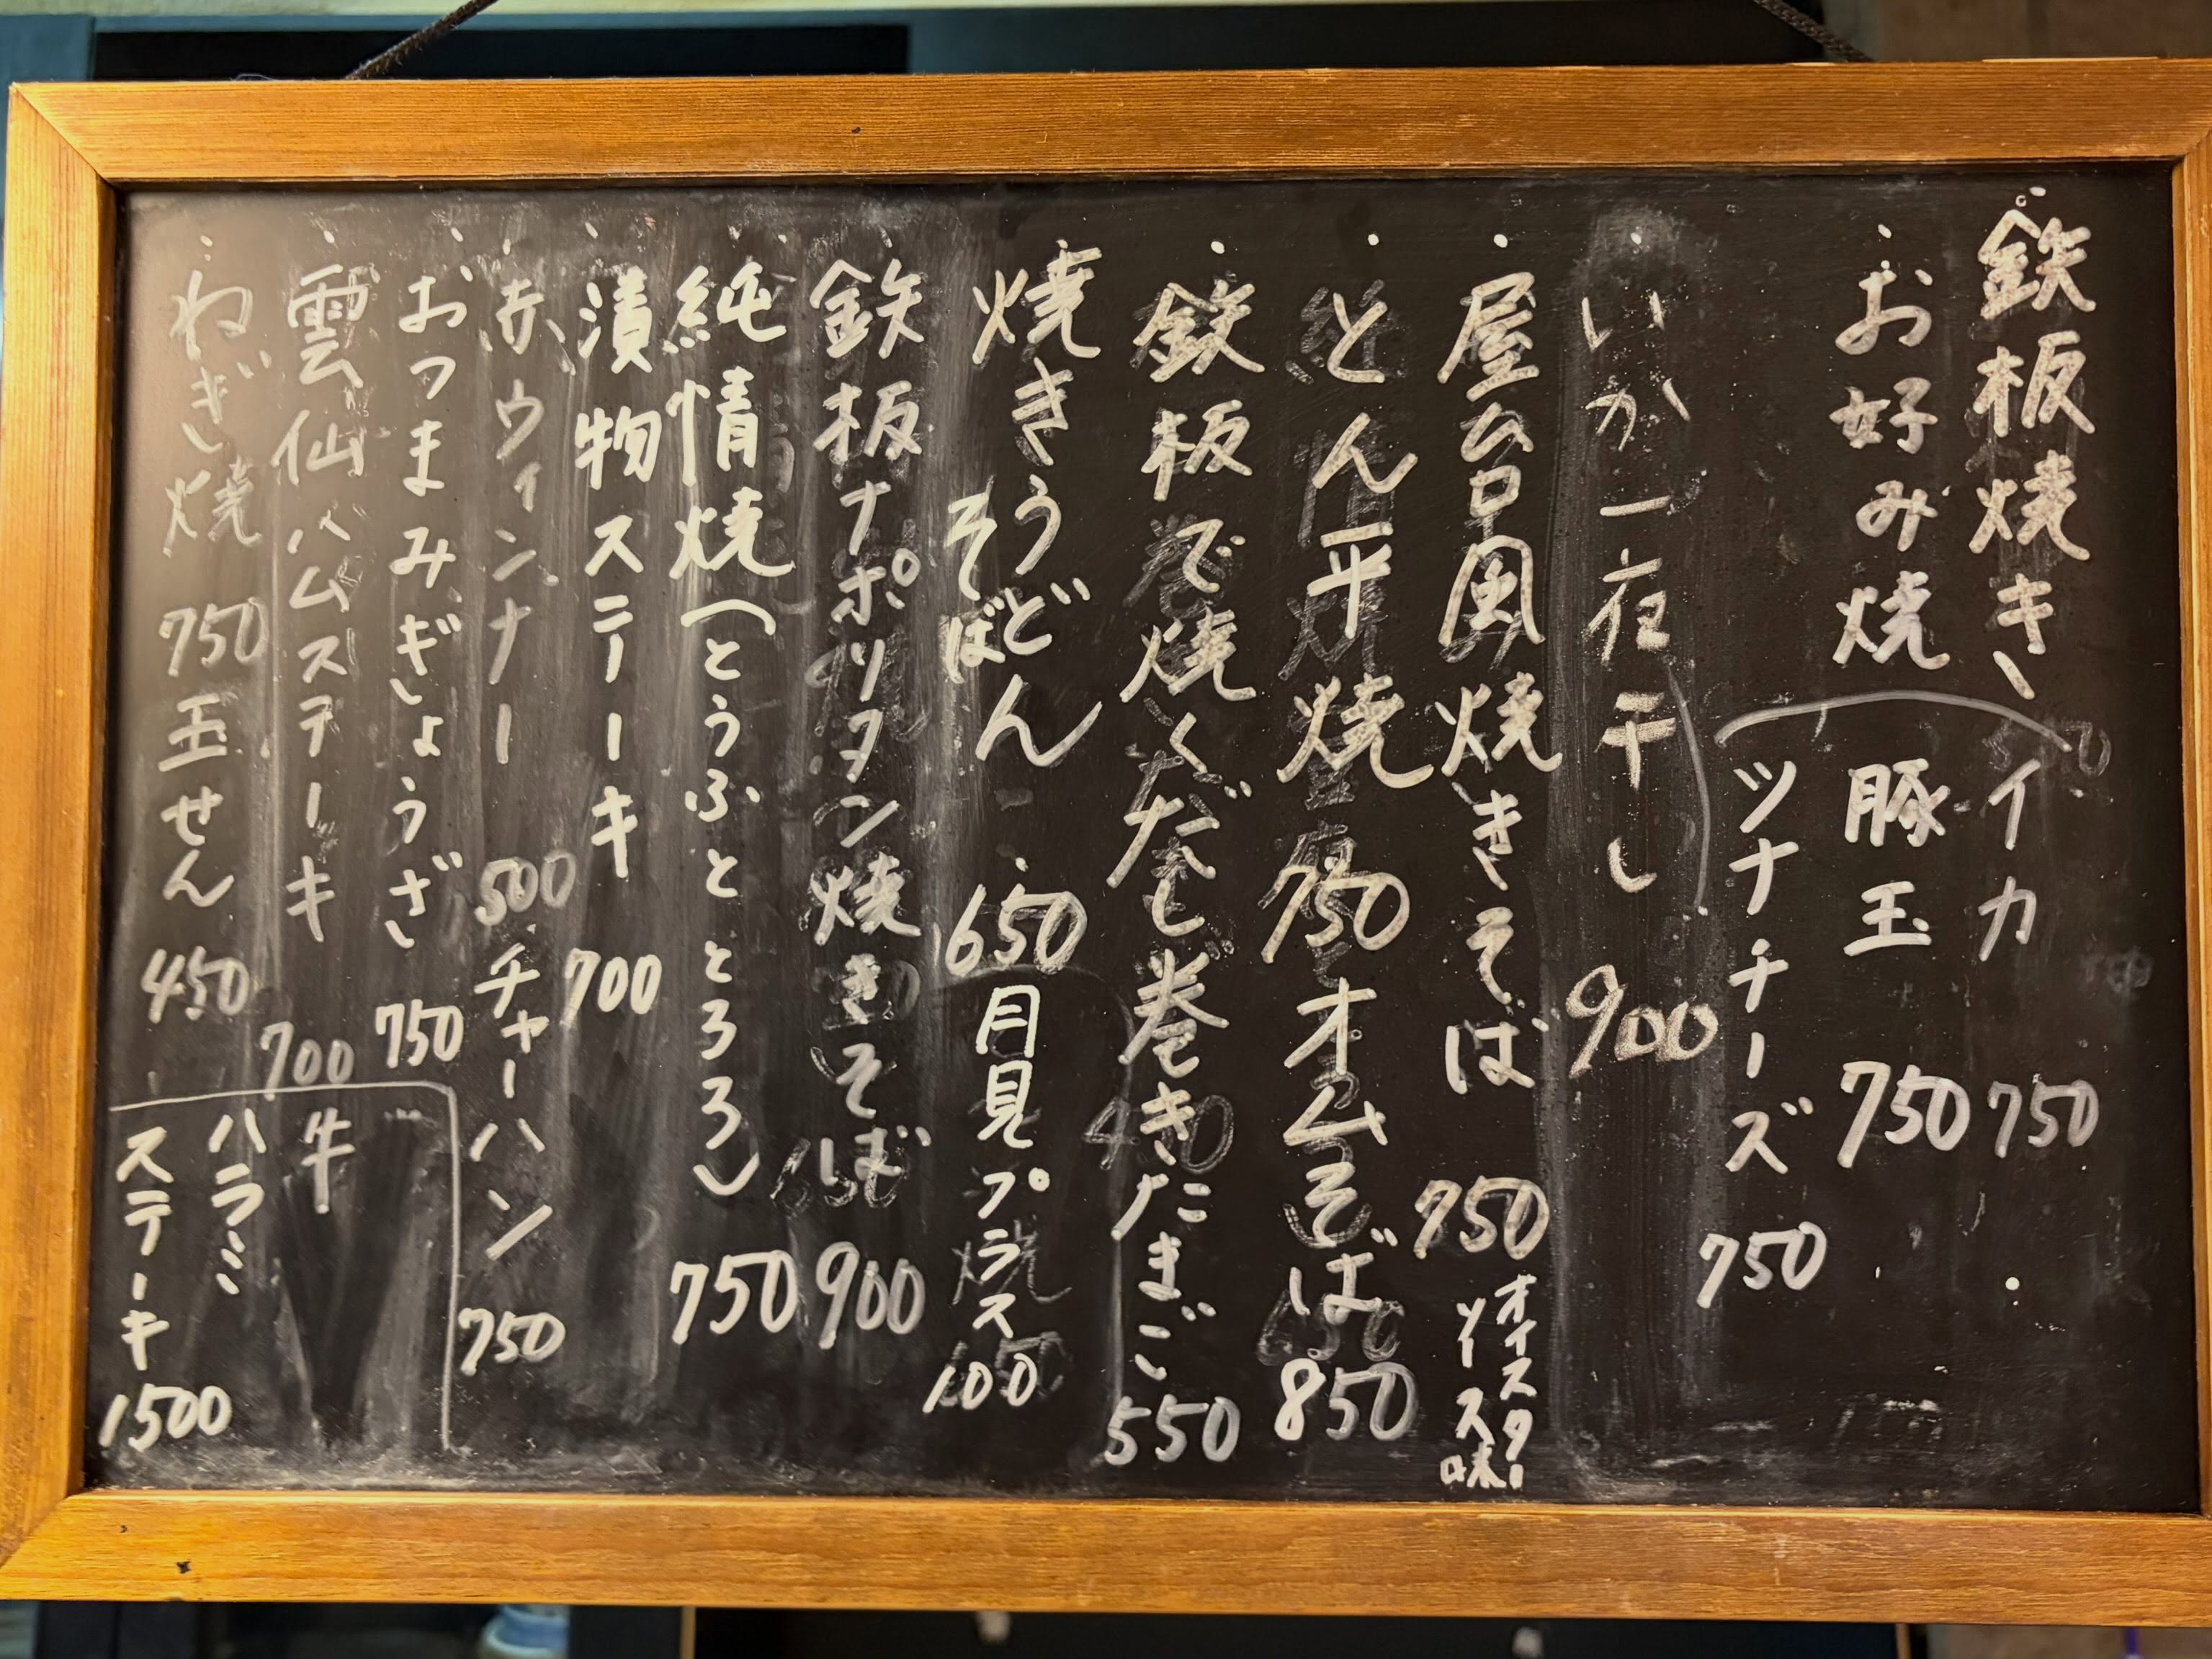 鉄板焼き
お好み焼
イカ 750
豚玉 750
ツナチーズ 750
いか一夜干し 900
屋台風焼きそば 750
オイスター
ソース味
とん平焼 750
オムそば 850
鉄板で焼くだし巻きたまご 550
焼きうどん
そば
650
月見プラス 100
鉄板ナポリタン焼きそば 900
純情焼(とうふととろろ) 750
漬物ステーキ 700
赤ウィンナー 500
チャーハン 750
おつまみぎょうざ 750
雲仙ハムステーキ 700
ねぎ焼 750
玉せん 450
牛
ハラミ
ステーキ 1500